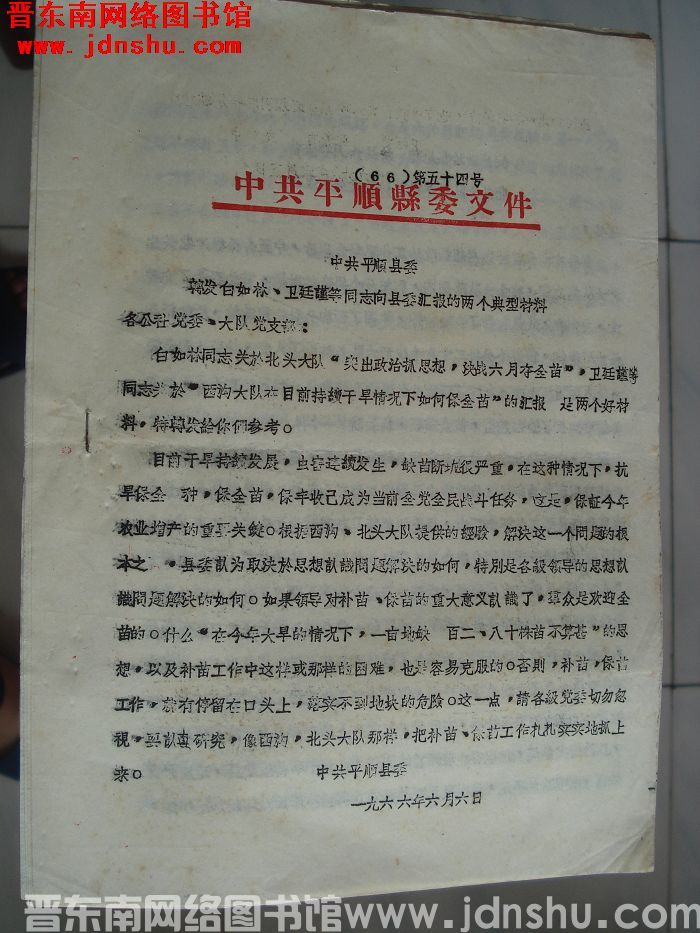 晋东南网络图书馆
www.jdnshu.com
(66)第五十四号
中共平順縣委文件
中共平顺县委
转发白如林、卫廷謹等同志向县委汇报的两个典型材料
各公社党委、大队党支部:
白如林同志关於北头大队“突出政治抓思想,决战六月夺全苗”,卫廷謹等
同志关於“西沟大队在目前持续干旱情况下如何保全苗”的汇报 是两个好材
料,特转发给你们参考。
目前干旱持续发展,虫害连续发生,缺苗断垅很严重,在这种情况下,抗
旱保全 种,保全苗,保丰收已成为当前全党全民战斗任务,这是,保证今年
农业增产的重要关键。根据西沟、北头大队提供的經驗,解决这一个问题的根
本之 ,县委訳为取决於思想訳識問題解决的如何,特别是各級领导的思想訳
識問題解决的如何。如果领导对补苗、保苗的重大意义訳識了,羣众是欢迎全
苗的。什么“在今年大旱的情况下,一亩地缺 百二、八十株苗不算甚”的思
想,以及补苗工作中这样或那样的困难,也是容易克服的。否则,补苗,保苗
工作,就有停留在口头上,落实不到地块的危险。这一点,請各級党委切勿忽
視,要訳真研究,像西沟,北头大队那样,把补苗、保苗工作扎扎实实地抓上
来。
中共平顺县委
一九六六年六月六日
晋东南网络图书馆www.jdnshu.com